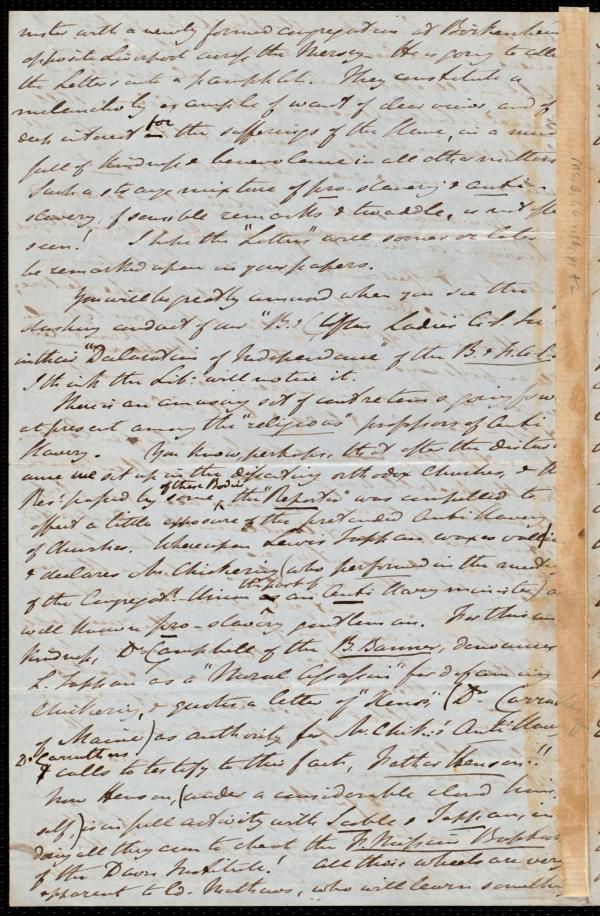 nister with a newly formed congregation at Birkenhead
opposite Liverpool across the Mersey. He is going to
the Letters into a pamphlet. They constitute a
melancholy example of want of clear views, and of
deep interest for the sufferings of the slave, in a mind
full of kindness & benevolence in all other matters
Such a strange mixture of pro-slavery & anti-
slavery, of sensible remarks & twaddle, is not often
seen! I hope the "Letters" will sooner or later
be remarked upon in your papers.
You will be greatly amused when you see the
dashing conduct of our "B. & Clifton Ladies A. S. Soc"
in their "Declaration of Independence" of the B. & F. A. S.
I think the Lib: will notice it.
There is an amusing set of going forw
at present among the "religious" professors of Anti
Slavery. You know, perhaps, that after the disturb
ance we set up in the different orthodox churches, & the
Res: passed by some of these Bodies, the "Reporter" was compelled to
effect a little exposure of the pretended Anti Slavery
of Churches. Whereupon Lewis Tappan waxes
& declares Mr. Chickering (who performed in the
of the Congregl. Union the part of an Anti Slavery minister) a
well known pro-slavery gentleman. For this un
kindness, Dr. Campbell of the B. Banner, denounces
L. Tappan as a "Moral Assassin" for defaming
Chickering, & quotes a letter of (Dr. Carruthers
of Maine) as authority for Mr. Chik:s Anti Slavery
Dr. Carruthers
& calls to testify to this fact, Father Henson!"
Now Henson, (under a considerable cloud him
self,) is in full activity with Scoble & Tappan, in
doing all they can to cheat the
of the Dawn Institute! All these wheels are very
apparent to Ed. Mathews, who will learn somethg